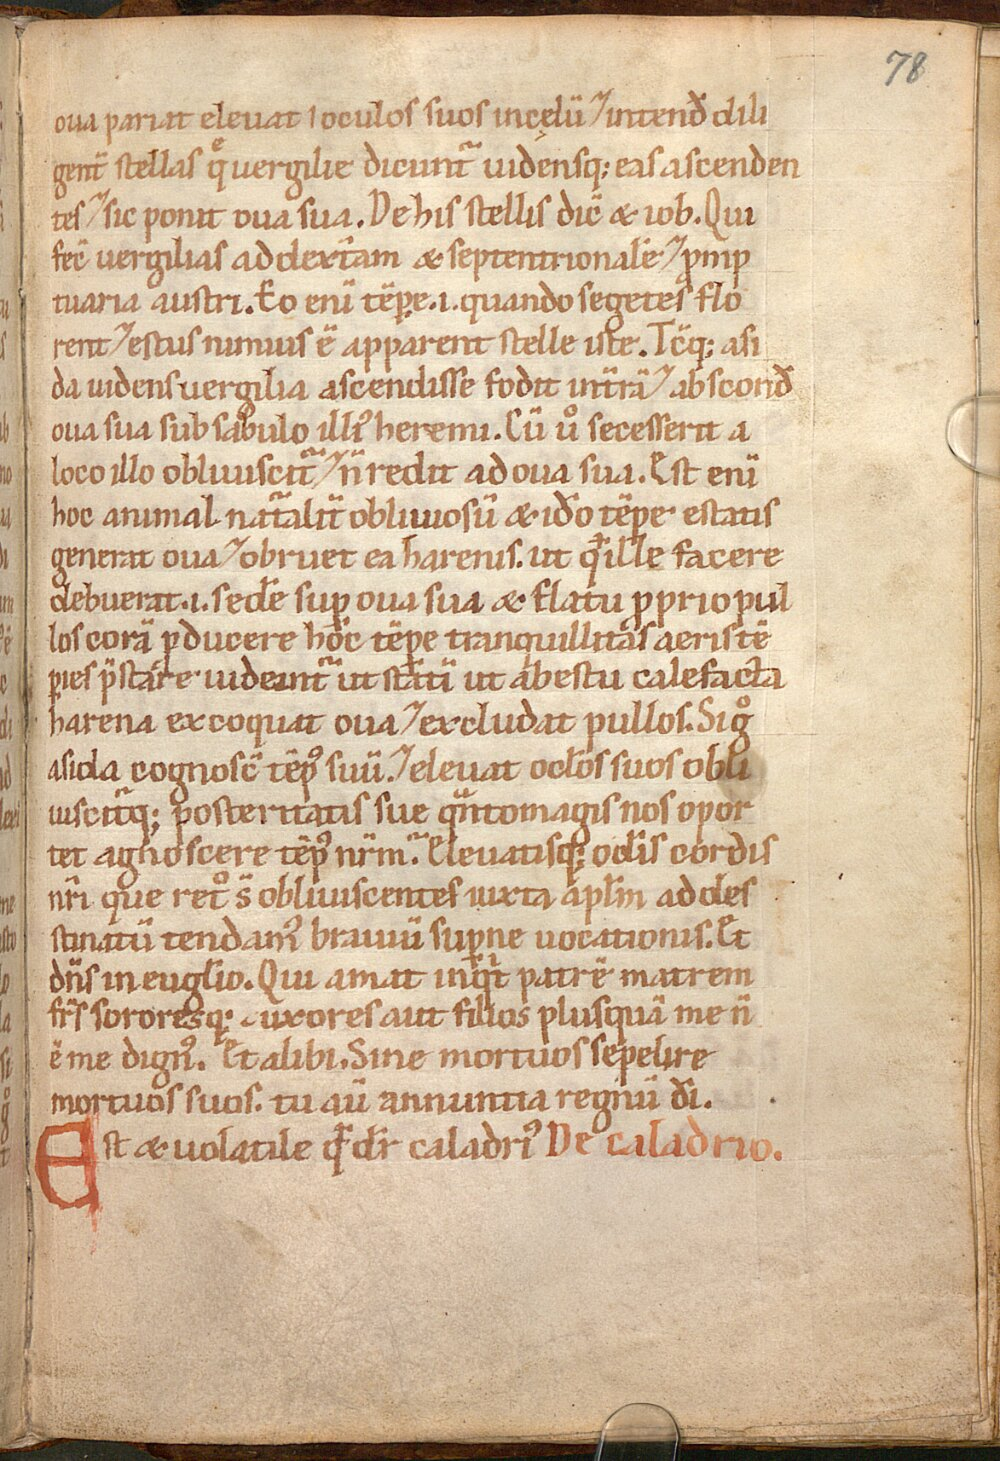 78
oua pariat eleuat oculos suos in cęlū ⁊ intend̄ dili
gent̄ stellas q̄ uergilie dicunt̄ uidensq; eas ascenden
tes ⁊ sic ponit oua sua. De his stellis dic̄ & iob. Qui
fec̄ uergilias ad dext̄am & septentrionale ⁊ ꝓmp
tuaria austri. Eo enī tēꝑe .i. quando segetes flo
rent ⁊ estus nimius ē apparent stelle iste. Tc̄q; asi
da uidens uergilia ascendisse fodit in t̄rā ⁊ abscond̄
oua sua sub sabulo illiꝰ heremi. Cū uº secesserit a
loco illo obliuiscit̄ ⁊ n̄ redit ad oua sua. Est enī
hoc animal nat̄alit̄ obliuiosū & id̄o tēꝑe estatis
generat oua ⁊ obruet ea harenis. ut qđ ille facere
debuerat .i. sedēe suꝑ oua sua & flatu ꝓprio pul
los corā ꝓducere hoc tēꝑe tranquillitas aeris tē
pies p̄stare uideant̄ ut statū ut ab estu calefacta
harena excoquat oua ⁊ excludat pullos. Sigº
asida cognosc̄ tēpꝰ suū. ⁊ eleuat oclōs suos obli
uiscit̄q; posteritatis sue q̄ntomagis nos opor
tet agnoscere tēpꝰ nr̄m. Eleuatisq; oclīs cordis
nr̄i que retº s̄ obliuiscentes iuxta apl̄m ad des
tinatū tendamꝰ brauiū suꝑne uocationis. Et
dn̄s in euglio. Qui amat inq̄t patrē matrem
fr̄s sororesq; uxores aut filios plusquā me n̄
ē me dignꝰ. Et alibi. Sine mortuos sepelire
mortuos suos. tu aū annuntia regnū dī.
Est & uolatile qđ dr̄ caladriꝰ De caladrio.